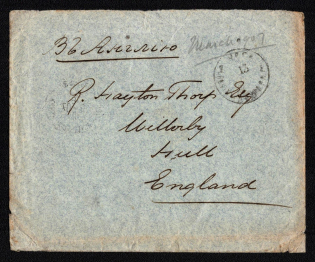 Въ Англiю
R. Hayton Thorp Esq
Willerby
Hull
England